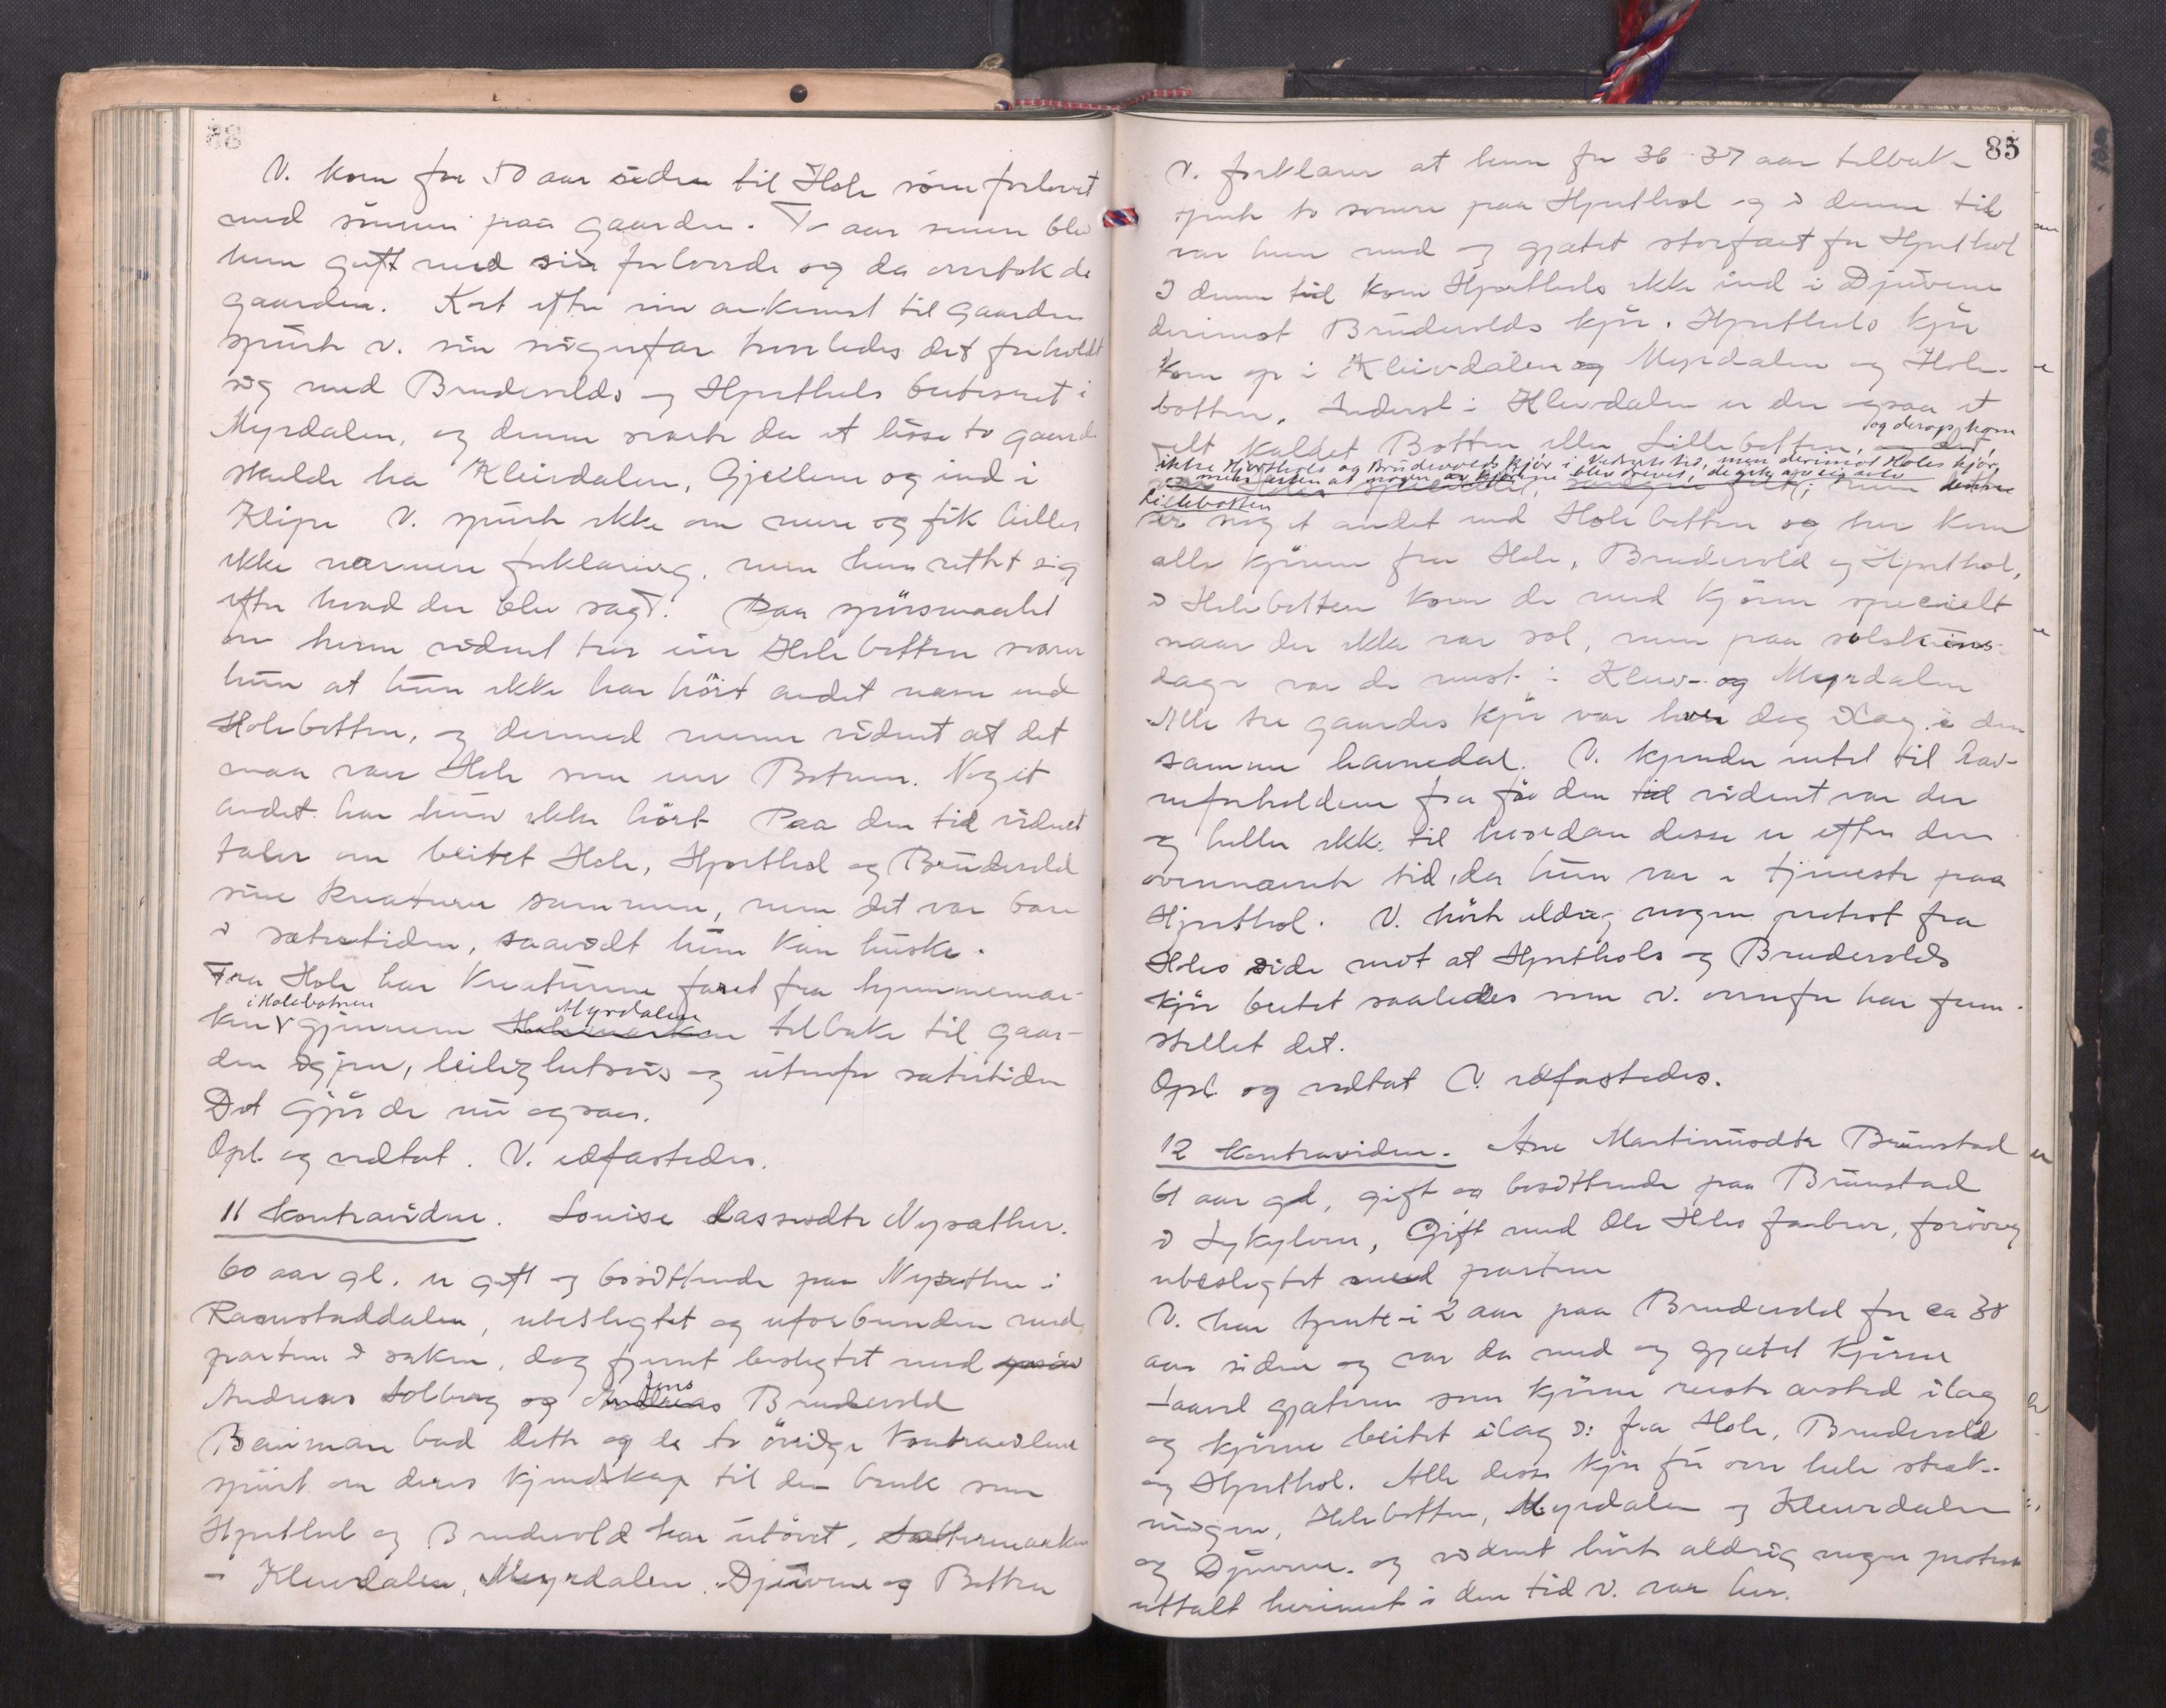 88
V. kom for 50 aar siden til Hole som forlovet
med sönnen paa gaarden. To aar senere blev
hun gift med sin forlovede og da overtok de
gaarden. Kort efter sin ankomst til gaarden
spurte v. sin svigerfar hvorledes det forholdt
sig med Brudevolds og Hjorthols beitesret i
Myrdalen, og denne svarte da at disse to gaarde
skulde ha Kleivdalen, Gjeilene og ind i
Klipe V. spurte ikke om mere og fik heller
ikke nærmere forklaring, men hun rettet sig
efter hvad der blev sagt. Paa spörsmaalet
om hvem vidnet tror eier Holebotten svarer
hun at hun ikke har hört andet navn end
Holebotten, og dermed mener vidnet at det
maa være Hole som eier Botnen. Noget
andet har hun ikke hört Paa den tid vidnet
taler om beitet Hole, Hjorthol og Brudevold
sine kreaturer sammen, men det var bare
i sætertiden, saavidt hun kan huske.
Fra Hole har kreaturene faret fra hjemmemar-
i Holebotnen Myrdalen
ken gjennem Holemarken tilbake til gaar-
den igjen, leilighetsvis og utenfor sætertiden
Det gjör de nu ogsaa.
Opl. og vedtat. V. edfæstedes.
11 Kontravidne. Louise Lassesdtr Nysæther.
60 aar gl. er gift og bosittende paa Nysæther i
Ramstaddalen, ubeslegtet og uforbunden med
partene i saken, dog fjernt beslegtet med
Jens
Andreas Solberg og Andreas Brudevold
Bauman bad dette og de to övrige kontravidner
spurt om deres kjendskap til den bruk som
Hjorthol og Brudevold har utövet, Sættermarken
i Kleivdalen, Myrdalen, Djuvene og Botten
85
V. forklarer at hun for 36 37 aar tilbake
tjente to somre paa Hjorthol og i denne tid
var hun med og gjætet storfæet for Hjorthol
I denne tid kom Hjorthols ikke ind i Djuvene
derimot Brudevolds kjör. Hjorthols kjör
kom op i Kleivdalen og Myrdalen og Hole-
botten. Inderst i Kleivdalen er der ogsaa et
og derop kom
felt kaldet Botten eller Lillebotten,
ikke Hjorthols og Brudevolds kjör i Vidnets tid, men derimot Holes kjör,
men uten at nogen av kjörne blev drevet, de gik av sig selv
denne
Lillebotten
er noget andet end Holebotten og her kom
alle kjörne fra Hole, Brudevold og Hjorthol,
i Holebotten kom de med kjörne specielt
naar der ikke var sol, men paa solskins-
dage var de mest i Kleiv- og Myrdalen
Alle tre gaardes kjör var hver dag ilag i den
samme havnedal. V. kjender intet til hav-
neforholdene fra för den tid vidnet var der
og heller ikke til hvordan disse er efter den
ovennævnte tid, da hun var i tjeneste paa
Hjorthol. V. hörte aldrig nogen protest fra
Holes side mot at Hjorthols og Brudevolds
kjör beitet saaledes som v. ovenfor har frem-
stillet det.
Opl. og vedtat V. edfæstedes.
12 Kontravidne. Ane Martinusdtr Brunstad
61 aar gl, gift og bosittende paa Brunstad
i Sykylven, Gift med Ole Holes farbror, forövrig
ubeslegtet med partene
V. har tjent i 2 aar paa Brudevold for ca 38
aar siden og var da med og gjætet kjörne
Saavel gjæterne som kjörne reiste avsted ilag
og kjörne beitet ilag ɔ: fra Hole, Brudevold
og Hjorthol. Alle disse kjör for over hele strek-
ningen, Holebotten, Myrdalen og Kleivdalen
og Djuvene. og vidnet hörte aldrig nogen protest
uttalt herimot i den tid v. var her.